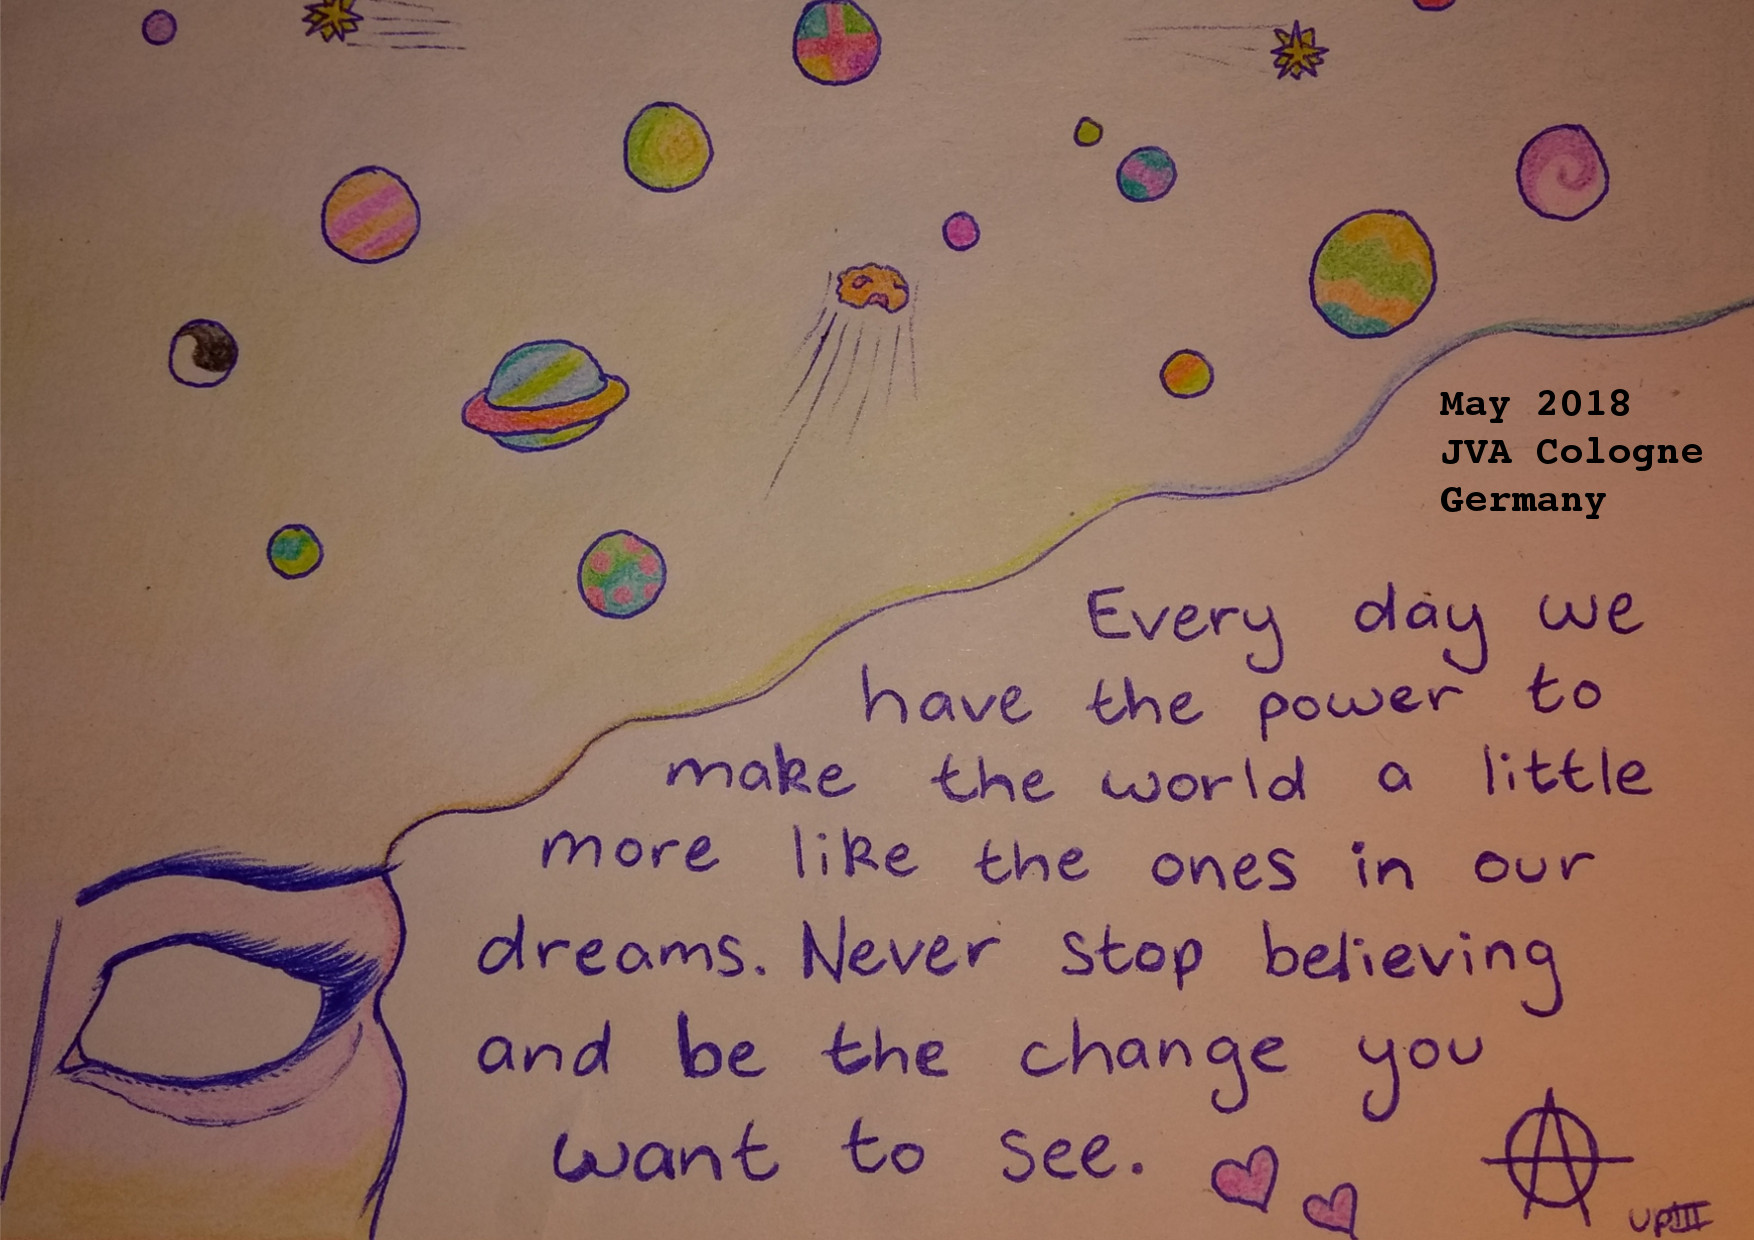 May 2018
JVA Cologne
Germany
Every day we
have the power to
make the world a little
more like the ones in our
dreams. Never stop believing
and be the change you
want to see.
UPIII